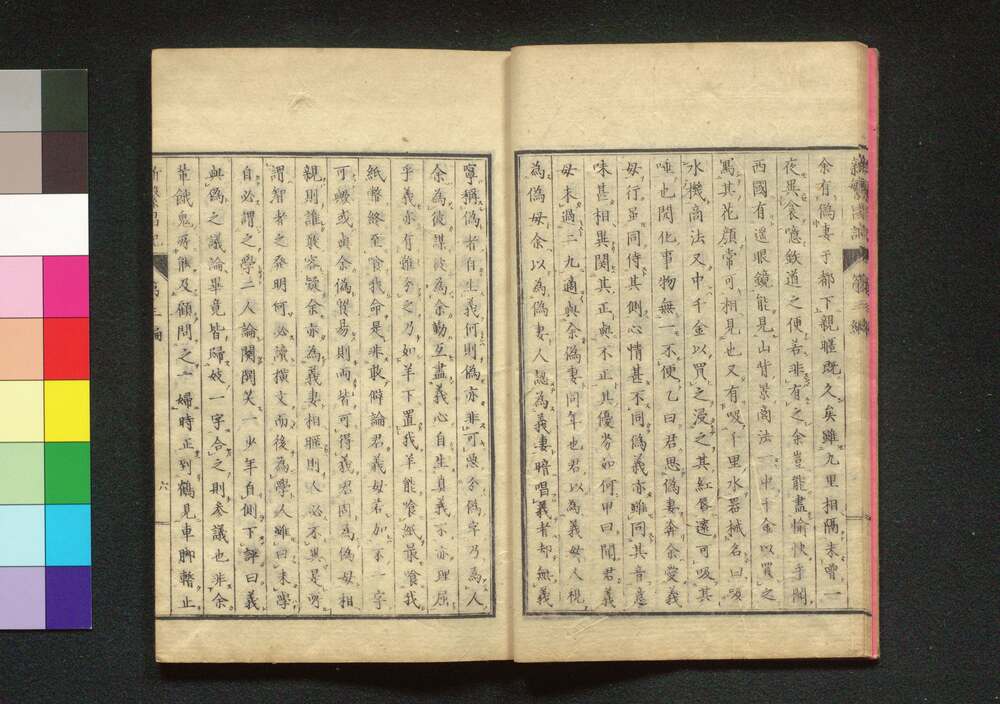 余有偽妻于都下親暱既久矣雖九里相隔未曾一
夜異食噫鉄道之便若非有之余豈能盡愉快乎聞
西國有遥眼鏡能見山背景商法一中千金以買之
寫其花顔常可相見也又有吸千里水器械名曰吸
水機商法又中千金以買之浸之其紅唇遠可吸其
唾也開化事物無一不便乙曰君思偽妻奔余愛義
母行虽同侍其側心情甚不同偽義亦雖同其音意
味甚相異関其正與不正其優劣如何甲曰聞君義
母未過二九適與余偽妻同年也君以為義母人視
為偽母余以為偽妻人認為義妻暗唱義者却無義
寧稱偽者自生義何則偽亦非可惡偽字乃為人
余為彼謀彼為余動互盡義心自生真義不亦理屈
乎義亦有雖字之乃如羊下置我羊能喰紙最喰我
紙幣終至喰我命是非敢僻論君義母若加不一字
可變或與余偽貿易則両皆可得義君間為偽母相
親則誰敢容疑余亦為義妻相暱則人必不異是所
謂智者之発明何必讀横文而後為學人雖曰未學
自必謂之學二人論闌閧笑一少年自側下評曰義
與偽之議論畢竟皆歸妓一字合之則参議也非余
輩餓鬼所能及顧問之一婦時正到鶴見車脚暫止
新繁昌記
第三編
六